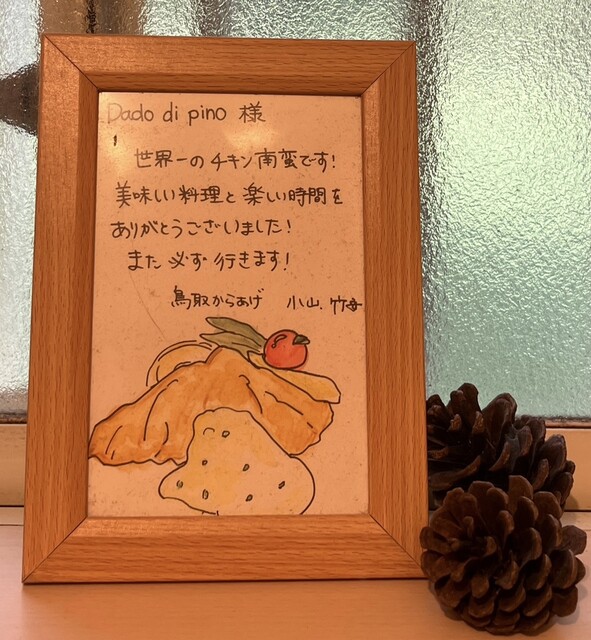 Dado di pino 様
世界一のチキン南蛮です!
美味しい料理と楽しい時間を
ありがとうございました!
また必ず行きます!
鳥取からあげ 小山、竹母